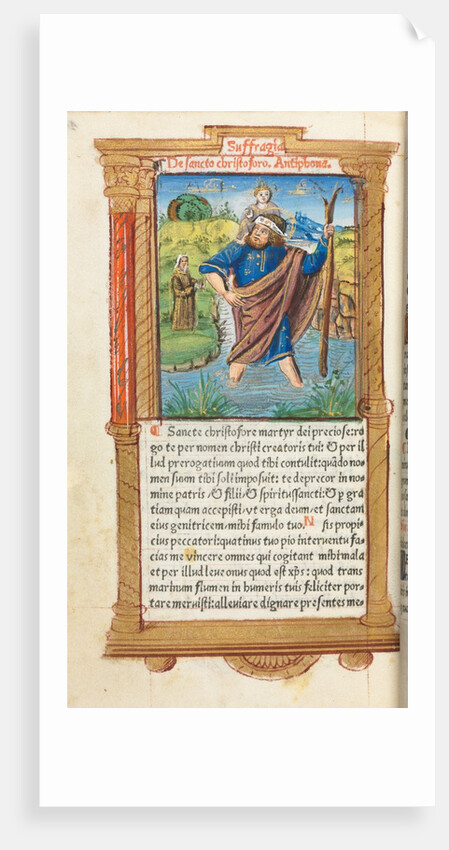 Suffragia
De sancto christoforo. Antiphona.
Sancte christofore martyr dei preciose: ro
go te per nomen christi creatoris tui: & per il
lud prerogatiuum quod tibi contulit: quãdo no
men suum tibi soli imposuit: te deprecor in no
mine patris & filii & spiritussancti: & p gra
tiam quam accepisti, vt erga deum et sanctam
eius genitricem, mihi famulo tuo. N sis propi
cius peccatori: quatinus tuo pio interuentu fa
cias me vincere omnes qui cogitant mihi mala
et per illud leue onus quod est xp̃s: quod trans
marinum flumen in humeris tuis feliciter por
tare meruisti: alleuiare dignare presentes me-